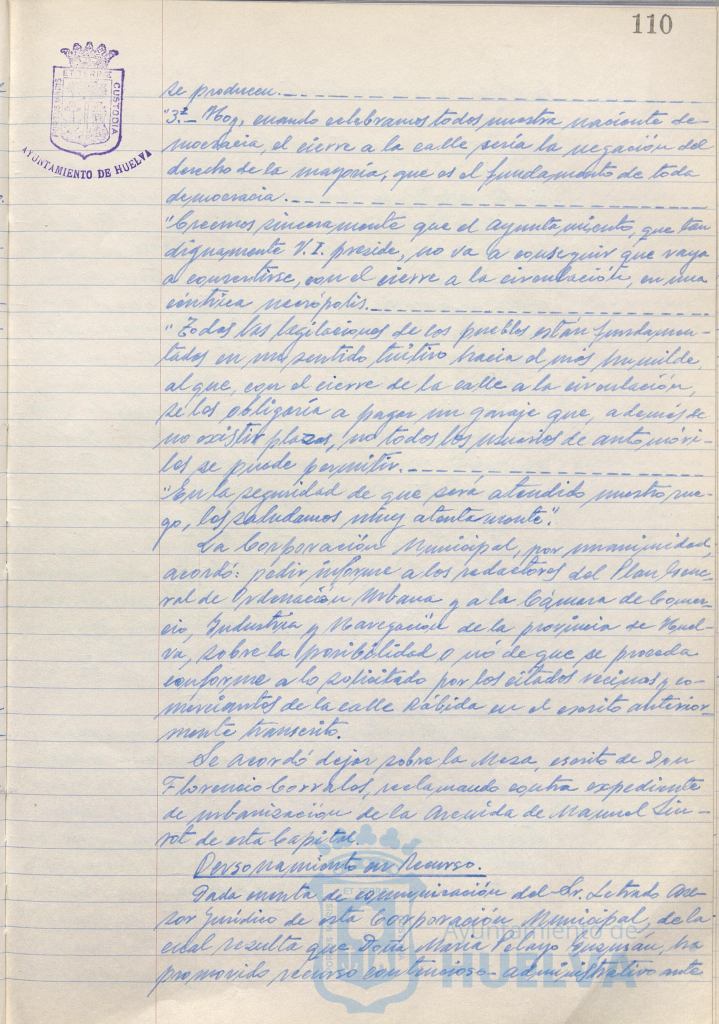 110
ET TERRÆ
CUSTODIA
AYUNTAMIENTO DE HUELVA
se producen.
"3ª.- Hoy, cuando celebramos todos nuestra naciente de-
mocracia, el cierre a la calle sería la negación del
derecho de la mayoría, que es el fundamento de toda
democracia.
"Creemos sinceramente que el Ayuntamiento, que tan
dignamente V.I. preside, no va a conseguir que vaya
a convertirse, con el cierre a la circulación, en una
céntrica necrópolis.
"Todas las legislaciones de los pueblos están fundamen-
tadas en un sentido tuitivo hacia el más humilde,
al que, con el cierre de la calle a la circulación,
se les obligaría a pagar un garaje que, además de
no existir plazas, no todos los usuarios de automóvi-
les se puede permitir.
"En la seguridad de que será atendido nuestro rue-
go, les saludamos muy atentamente".
La Corporación Municipal, por unanimidad,
acordó: pedir informe a los redactores del Plan Gene-
ral de Ordenación Urbana y a la Cámara de Comer-
cio, Industria y Navegación de la provincia de Huel-
va, sobre la posibilidad o nó de que se proceda
conforme a lo solicitado por los citados vecinos y co-
merciantes de la calle Rábida en el escrito anterior-
mente transcrito.
Se acordó dejar sobre la Mesa, escrito de Don
Florencio Corrales, reclamando contra expediente
de urbanización de la Avenida de Manuel Siu-
rot de esta Capital.
Personamiento en Recurso.
Dada cuenta de comunicación del Sr. Letrado Ase-
sor Jurídico de esta Corporación Municipal, de la
cual resulta que Doña María Pelayo Guzmán, ha
promovido recurso contencioso-administrativo ante
Ayuntamiento de
HUELVA